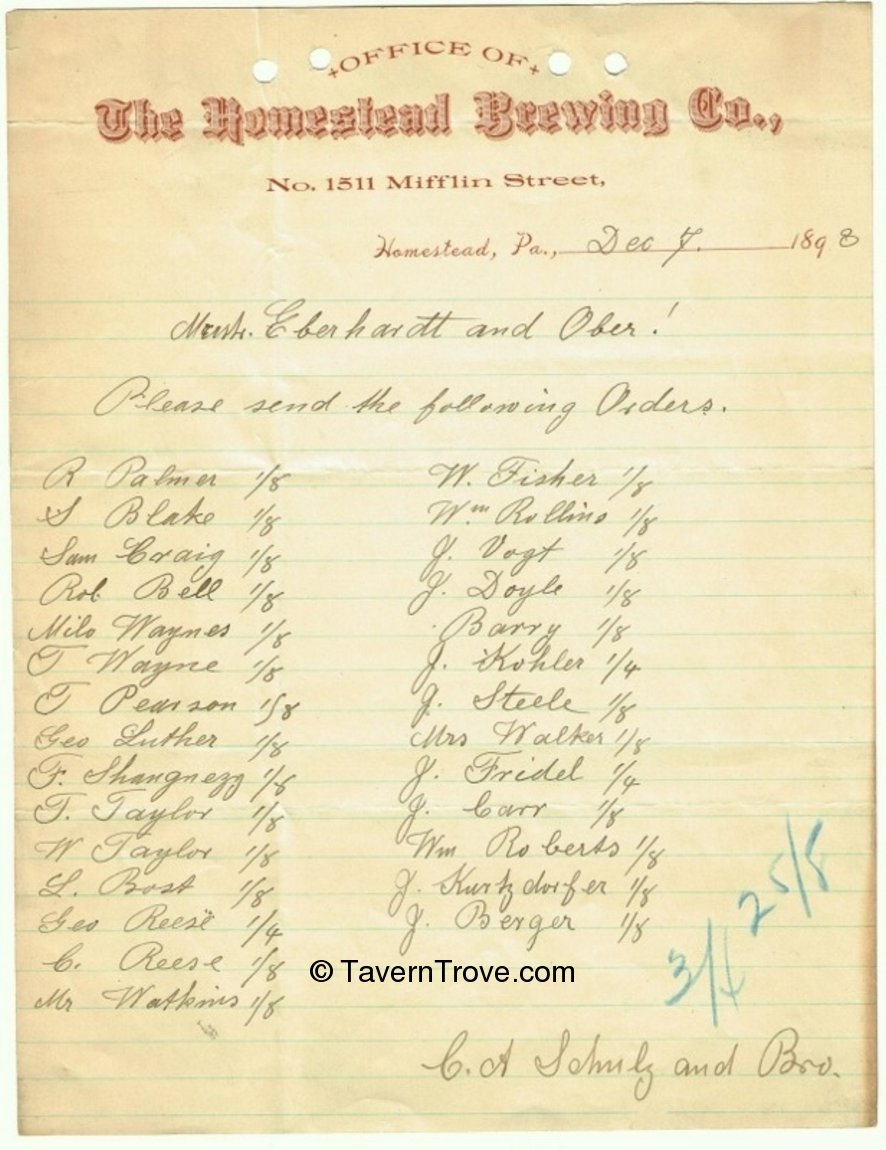 OFFICE OF
The Homestead Brewing Co.,
No. 1511 Mifflin Street,
Homestead, Pa., Dec 7. 1898
Eberhardt and Ober!
Please send the following Orders.
R Palmer 1/8
S Blake 1/8
Sam Craig 1/8
Rob Bell 1/8
Milo Waynes 1/8
T Wayne 1/8
T Pearson 1/8
Geo Luther 1/8
F. Shangnezy 1/8
T. Taylor 1/8
W Taylor 1/8
L. Bost 1/8
Geo Reese 1/4
C. Reese 1/8
Mr Watkins 1/8
W. Fisher 1/8
Wm Rollins 1/8
J. Vogt 1/8
J. Doyle 1/8
Barry 1/8
J. Kohler 1/4
J. Steele 1/8
Mrs Walker 1/8
J. Fridel 1/4
J. Carr 1/8
Wm Roberts 1/8
J. Kurtzdorfer 1/8
J. Berger 1/8
25/8
3/4
© TavernTrove.com
C. A Schulz and Bro.